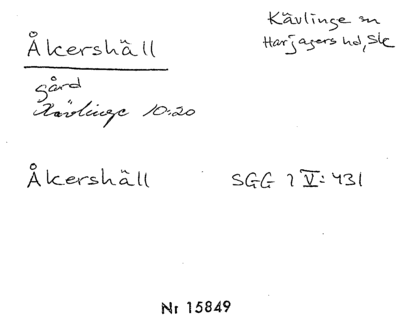 Åkershäll
Kävlinge sn
Harjagers hd, Sk
gård
Kävlinge 10:20
Åkershäll SGG 1 V: 431
Nr 15849